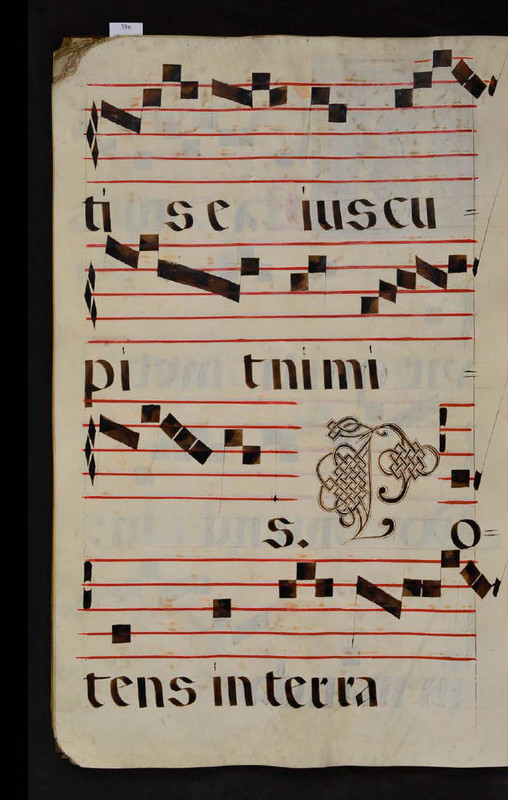 ti se iuscu=
pi tnimi=
s. Po=
tens in terra